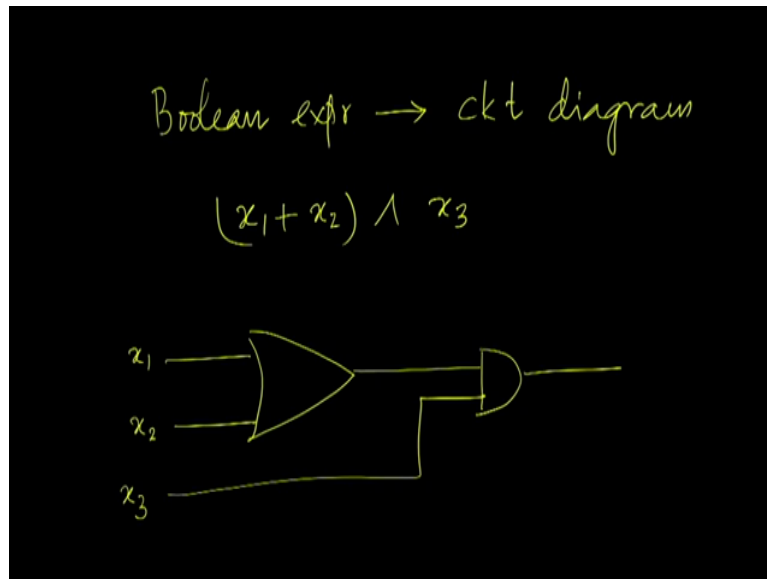 Boolean expr → ckt diagram
(x₁ + x₂) ∧ x₃
x₁
x₂
x₃